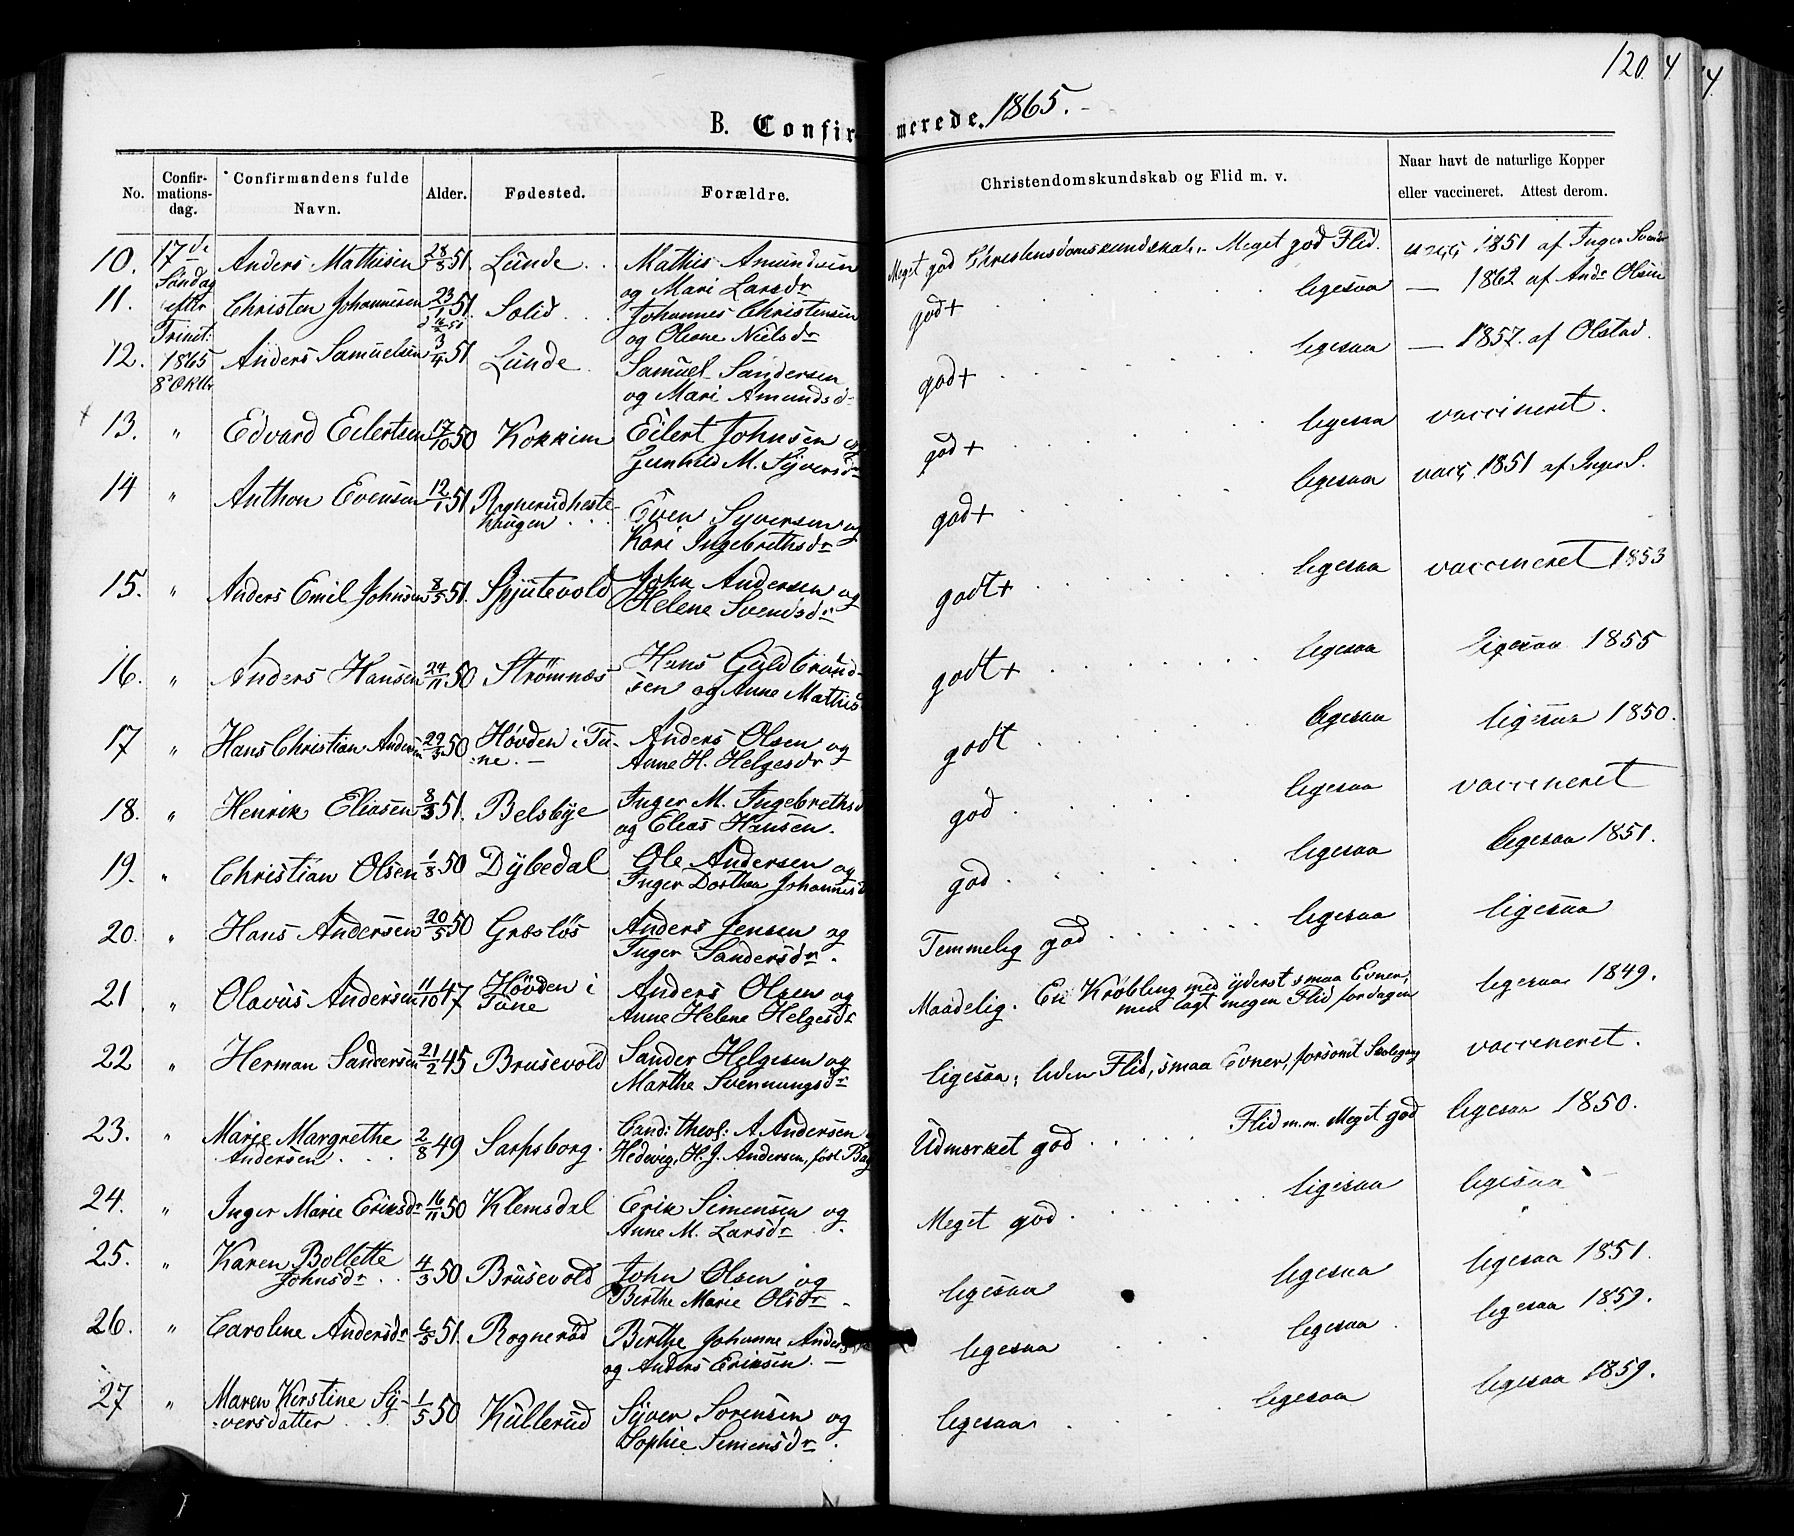 120.
4
4
B. Confirmerede. 1865.
No.
Confirmationsdag.
Confirmandens fulde Navn.
Alder.
Fødested.
Forældre.
Christendomskundskab og Flid m. v.
Naar havt de naturlige Kopper eller vaccineret. Attest derom.
10. 17de Anders Mathisen 28/3 51. Lunde Mathis Amundsen Meget god Christensdomskundskab. Meget god Flid. vacc. 1851 af Inger Svends
Søndag og Mari Larsdr
11. efter Christen Johannesen 23/1 51 Solid Johannes Christensen god+ ligesaa — 1862 af Andr Olsen
Trinit: og Oleane Nielsdr
12. 1865 Anders Samuelsen 3/4 51 Lunde Samuel Sandersen god+ ligesaa — 1857. af Olstad.
8 Oktbr og Mari Amundsd
13. " Edvard Eilertsen 17/10 50 Kokkim Eilert Johnsen og god+ ligesaa vaccineret.
Gunhild M. Syversdr
14 " Anthon Evensen 12/1 51. Rognerudheste Even Syversen og god+ ligesaa vacc. 1851 af Inger S.
haugen Kari Ingebrethsdr
15. " Anders Emil Johnsen 8/5 51. Spjutevold John Andersen og godt+ ligesaa vaccineret 1853
Helene Svendsdr
16. " Anders Hansen 24/11 50 Strømnæs Hans Guldbrand- godt+ ligesaa ligesaa 1855
sen og Anne Mathis
17 " Hans Christian Andersen 29/3 50 Høvden i Tu- Anders Olsen og godt ligesaa ligesaa 1850.
ne. — Anne H. Helgesdr
18. " Henrik Eliasen 8/3 51. Belsbye Inger M. Ingebrethsd god ligesaa vaccineret
og Elias Hansen.
19. " Christian Olsen 1/8 50 Dybedal Ole Andersen og god ligesaa ligesaa 1851.
Inger Dorthea Johannesd
20. " Hans Andersen 20/5 50 Græsløs Anders Jensen og Temmelig god ligesaa ligesaa
Inger Sandersdr.
21 " Olavus Andersen 11/10 47 Høvden i Anders Olsen og Maadelig. En Krøbling med yderst smaa Evner, ligesaa 1849.
Tune Anne Helene Helgesdr men lagt megen Flid for dagen
22 " Herman Sandersen 21/2 45 Brusevold Sander Helgesen og ligesaa; liden Flid, smaa Evner, forsømt Skolegang vaccineret.
Marthe Svennungsdr
23. " Marie Margrethe 2/8 49 Sarpsborg. Cand: theol: A. Andersen Udmærket god Flid m.m. Meget god ligesaa 1850.
Andersen Hedevig, H. J. Andersen, født
24. " Inger Marie Eriksdr 16/11 50 Klemsdal Erik Simensen og Meget god ligesaa ligesaa
Anne M. Larsdr
25. " Karen Bollette 4/3 50 Brusevold John Olsen og ligesaa ligesaa ligesaa 1851.
Johnsdr Berthe Marie Olsdr
26. " Caroline Andersdr 6/5 51. Rognerød Berthe Johanne Anders ligesaa ligesaa ligesaa 1859.
og Anders Eriksen. —
27 " Maren Kirstine Sy- 1/5 50 Kullerud Syver Sørensen og ligesaa ligesaa ligesaa 1859.
versdatter Sophie Simensdr.